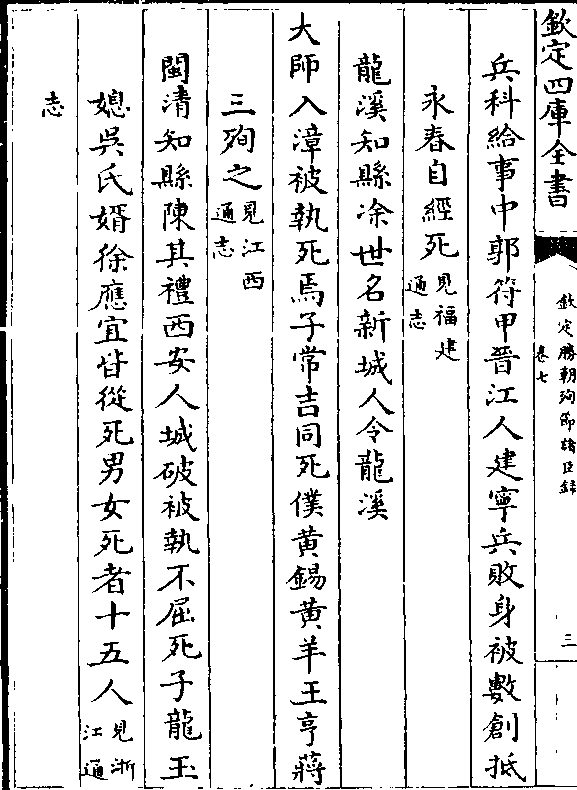 欽定四庫全書
欽定勝朝殉節諸臣錄
卷七
三
兵科給事中郭符甲晋江人建寧兵敗身被數創抵
永春自經死見福建通志
龍溪知縣凃世名新城人令龍溪
大師入漳被執死焉子常吉同死僕黃錫黃羊王亨蔣
三殉之見江西通志
閩清知縣陳其禮西安人城破被執不屈死子龍玉
媳吳氏婿徐應宜皆從死男女死者十五人見浙江通
志